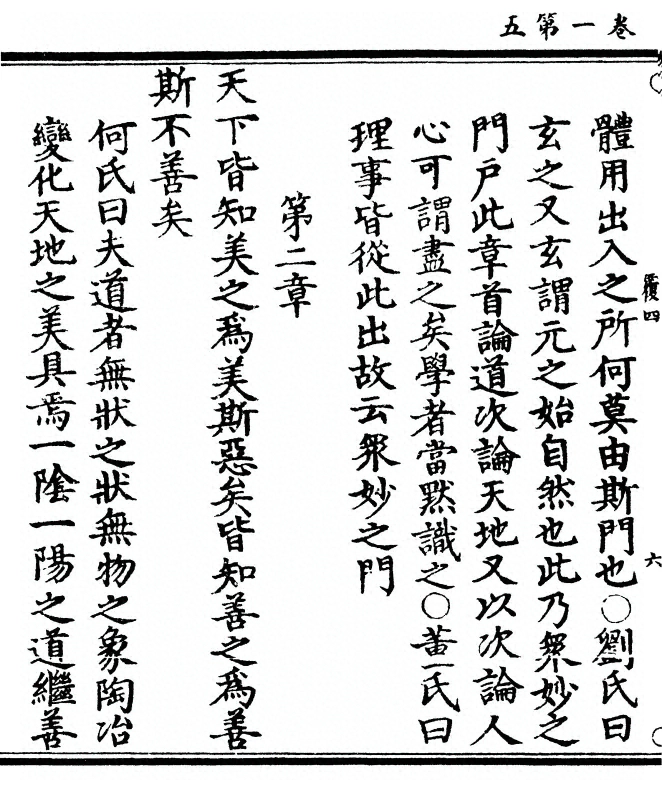 卷一第五
覆四
六
體用出入之所何莫由斯門也○劉氏曰
玄之又玄謂元之始自然也此乃衆妙之
門戶此章首論道次論天地又以次論人
心可謂盡之矣學者當默識之○黃氏曰
理事皆從此出故云衆妙之門
第二章
天下皆知美之爲美斯惡矣皆知善之爲善
斯不善矣
何氏曰夫道者無狀之狀無物之象陶冶
變化天地之美具焉一陰一陽之道繼善